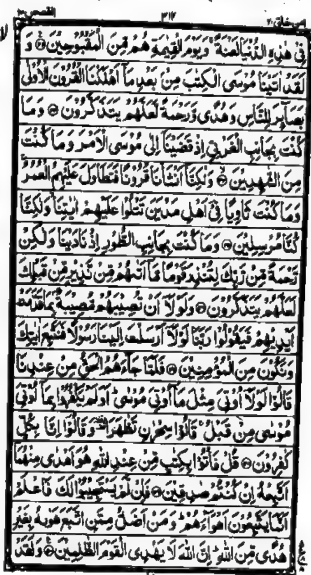 امن خلق ٢٠ ٣١٧ القصص ٢٨
فِیْ هٰذِهِ الدُّنْیَا لَعْنَةً ۚ وَیَوْمَ الْقِیٰمَةِ هُمْ مِّنَ الْمَقْبُوْحِیْنَ۝ وَ
لَقَدْ اٰتَیْنَا مُوْسَی الْكِتٰبَ مِنْۢ بَعْدِ مَاۤ اَهْلَكْنَا الْقُرُوْنَ الْاُوْلٰی
بَصَآىِٕرَ لِلنَّاسِ وَهُدًی وَّرَحْمَةً لَّعَلَّهُمْ یَتَذَكَّرُوْنَ۝ وَمَا
كُنْتَ بِجَانِبِ الْغَرْبِیِّ اِذْ قَضَیْنَاۤ اِلٰی مُوْسَی الْاَمْرَ وَمَا كُنْتَ
مِنَ الشّٰهِدِیْنَ۝ وَلٰكِنَّاۤ اَنْشَاْنَا قُرُوْنًا فَتَطَاوَلَ عَلَیْهِمُ الْعُمُرُ ۚ
وَمَا كُنْتَ ثَاوِیًا فِیْۤ اَهْلِ مَدْیَنَ تَتْلُوْا عَلَیْهِمْ اٰیٰتِنَا وَلٰكِنَّا
كُنَّا مُرْسِلِیْنَ۝ وَمَا كُنْتَ بِجَانِبِ الطُّوْرِ اِذْ نَادَیْنَا وَلٰكِنْ
رَّحْمَةً مِّنْ رَّبِّكَ لِتُنْذِرَ قَوْمًا مَّاۤ اَتٰىهُمْ مِّنْ نَّذِیْرٍ مِّنْ قَبْلِكَ
لَعَلَّهُمْ یَتَذَكَّرُوْنَ۝ وَلَوْلَاۤ اَنْ تُصِیْبَهُمْ مُّصِیْبَةٌۢ بِمَا قَدَّمَتْ
اَیْدِیْهِمْ فَیَقُوْلُوْا رَبَّنَا لَوْلَاۤ اَرْسَلْتَ اِلَیْنَا رَسُوْلًا فَنَتَّبِعَ اٰیٰتِكَ
وَنَكُوْنَ مِنَ الْمُؤْمِنِیْنَ۝ فَلَمَّا جَآءَهُمُ الْحَقُّ مِنْ عِنْدِنَا
قَالُوْا لَوْلَاۤ اُوْتِیَ مِثْلَ مَاۤ اُوْتِیَ مُوْسٰی ؕ اَوَلَمْ یَكْفُرُوْا بِمَاۤ اُوْتِیَ
مُوْسٰی مِنْ قَبْلُ ۚ قَالُوْا سِحْرٰنِ تَظٰهَرَا ۫ وَقَالُوْۤا اِنَّا بِكُلٍّ
كٰفِرُوْنَ۝ قُلْ فَاْتُوْا بِكِتٰبٍ مِّنْ عِنْدِ اللّٰهِ هُوَ اَهْدٰی مِنْهُمَاۤ
اَتَّبِعْهُ اِنْ كُنْتُمْ صٰدِقِیْنَ۝ فَاِنْ لَّمْ یَسْتَجِیْبُوْا لَكَ فَاعْلَمْ
اَنَّمَا یَتَّبِعُوْنَ اَهْوَآءَهُمْ ؕ وَمَنْ اَضَلُّ مِمَّنِ اتَّبَعَ هَوٰىهُ بِغَیْرِ
هُدًی مِّنَ اللّٰهِ ؕ اِنَّ اللّٰهَ لَا یَهْدِی الْقَوْمَ الظّٰلِمِیْنَ۝ وَلَقَدْ